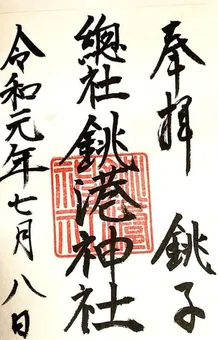 奉拝 銚子
總社銚港神社
令和元年七月八日